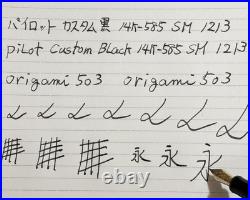 パイロット カスタム 黒 14K-585 SM 1213
Pilot Custom Black 14K-585 SM 1213
origami503 origami503
永 永 永